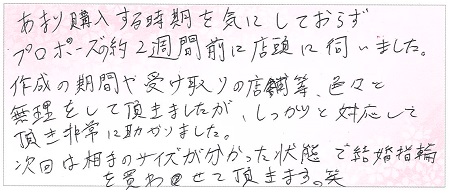 あまり購入する時期を気にしておらず
プロポーズの約2週間前に店頭に伺いました。
作成の期間や受け取りの店舗等、色々と
無理をして頂きましたが、しっかりと対応して
頂き非常に助かりました。
次回は相手のサイズが分かった状態で結婚指輪
を買わせて頂きます。笑